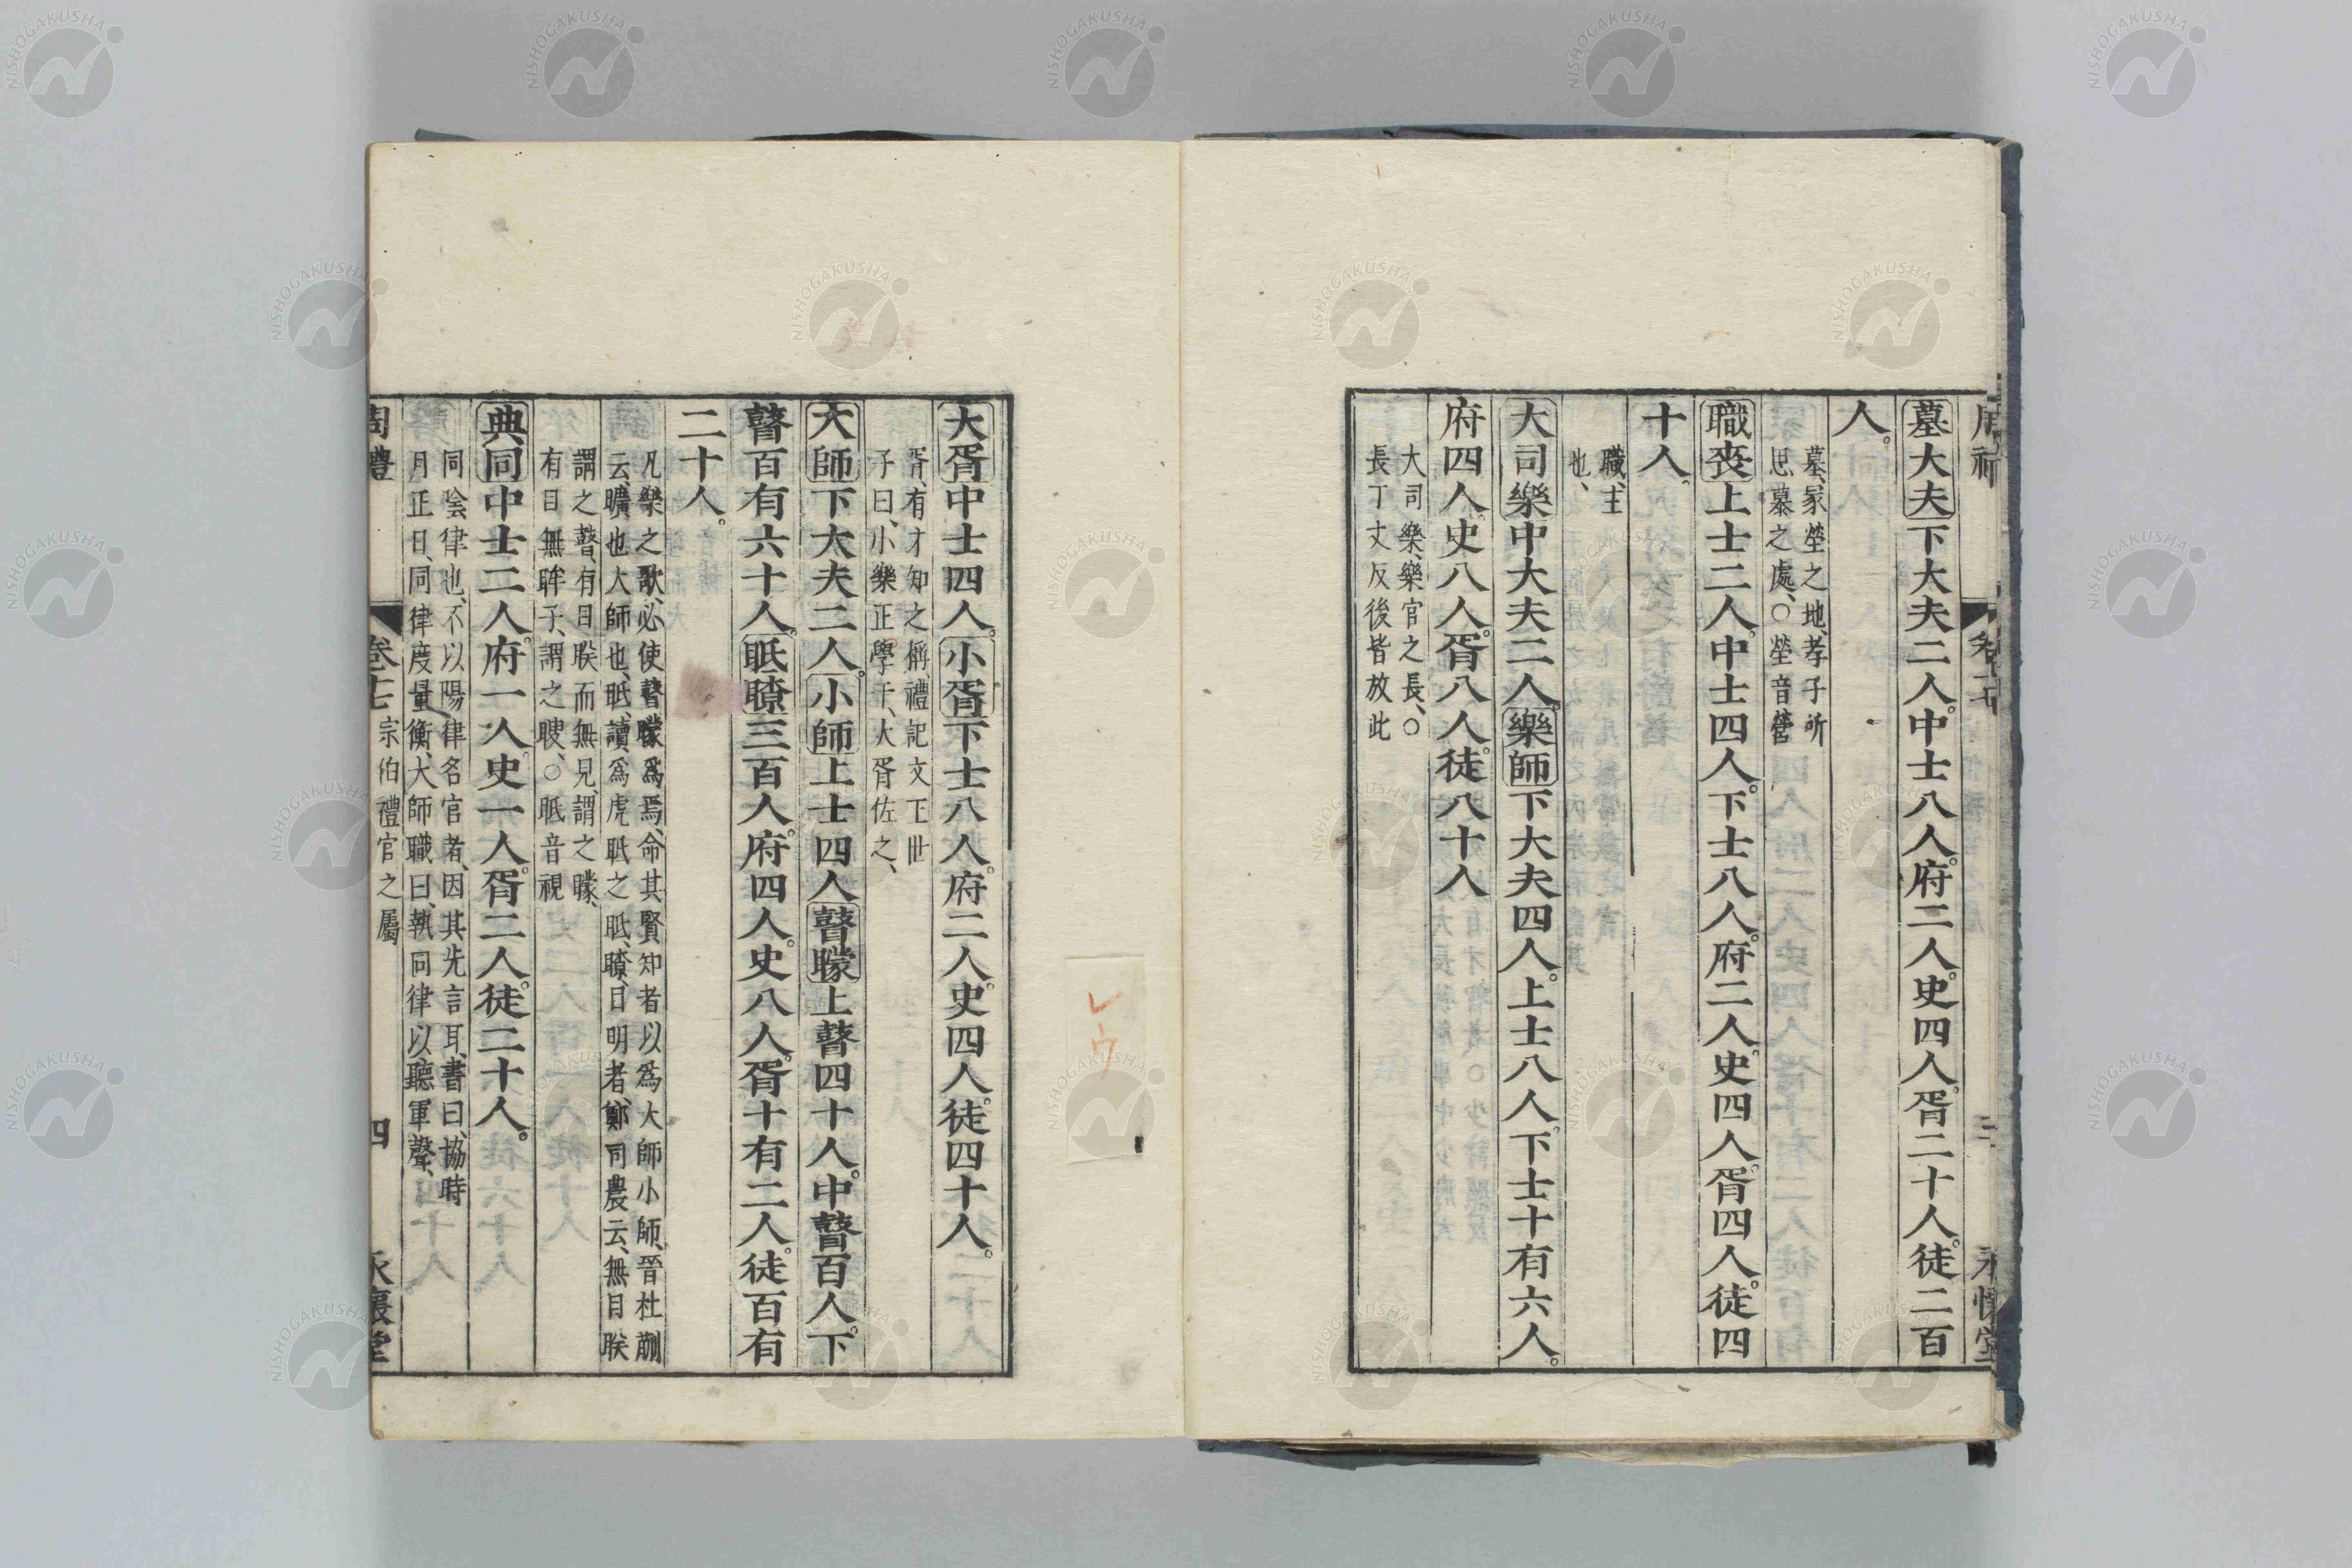 墓大夫下大夫二人。中士八人。府二人。史四人。胥二十人。徒二百
人。
墓、冢塋之地、孝子所
思慕之處、○塋音營
職喪上士二人。中士四人。下士八人。府二人。史四人。胥四人。徒四
十人。
職、主
也、
大司樂中大夫二人。樂師下大夫四人。上士八人。下士十有六人。
府四人。史八人。胥八人。徒八十人
大司樂、樂官之長、○
長丁丈反後皆放此
大胥中士四人。小胥下士八人。府二人。史四人。徒四十人。
胥、有才知之稱、禮記文王世
子曰、小樂正學干、大胥佐之、
大師下大夫二人。小師上士四人瞽矇上瞽四十人。中瞽百人。下
瞽百有六十人。眡瞭三百人。府四人。史八人。胥十有二人。徒百有
二十人。
凡樂之歌、必使瞽矇爲焉、命其賢知者以爲大師小師、晉杜蒯
云、曠也大師也、眡、讀爲虎眡之眡、瞭、目明者、鄭司農云、無目眹
謂之瞽、有目眹而無見、謂之矇、
有目無眸子、謂之瞍、○眡音視
典同中士二人。府一人。史一人。胥二人。徒二十人。
同陰律也、不以陽律名官者、因其先言耳、書曰、協時
月正日、同律度量衡、大師職曰、執同律以聽軍聲、
周禮 卷十七 宗伯禮官之屬 四 永懷堂
レウ
NISHOGAKUSHA